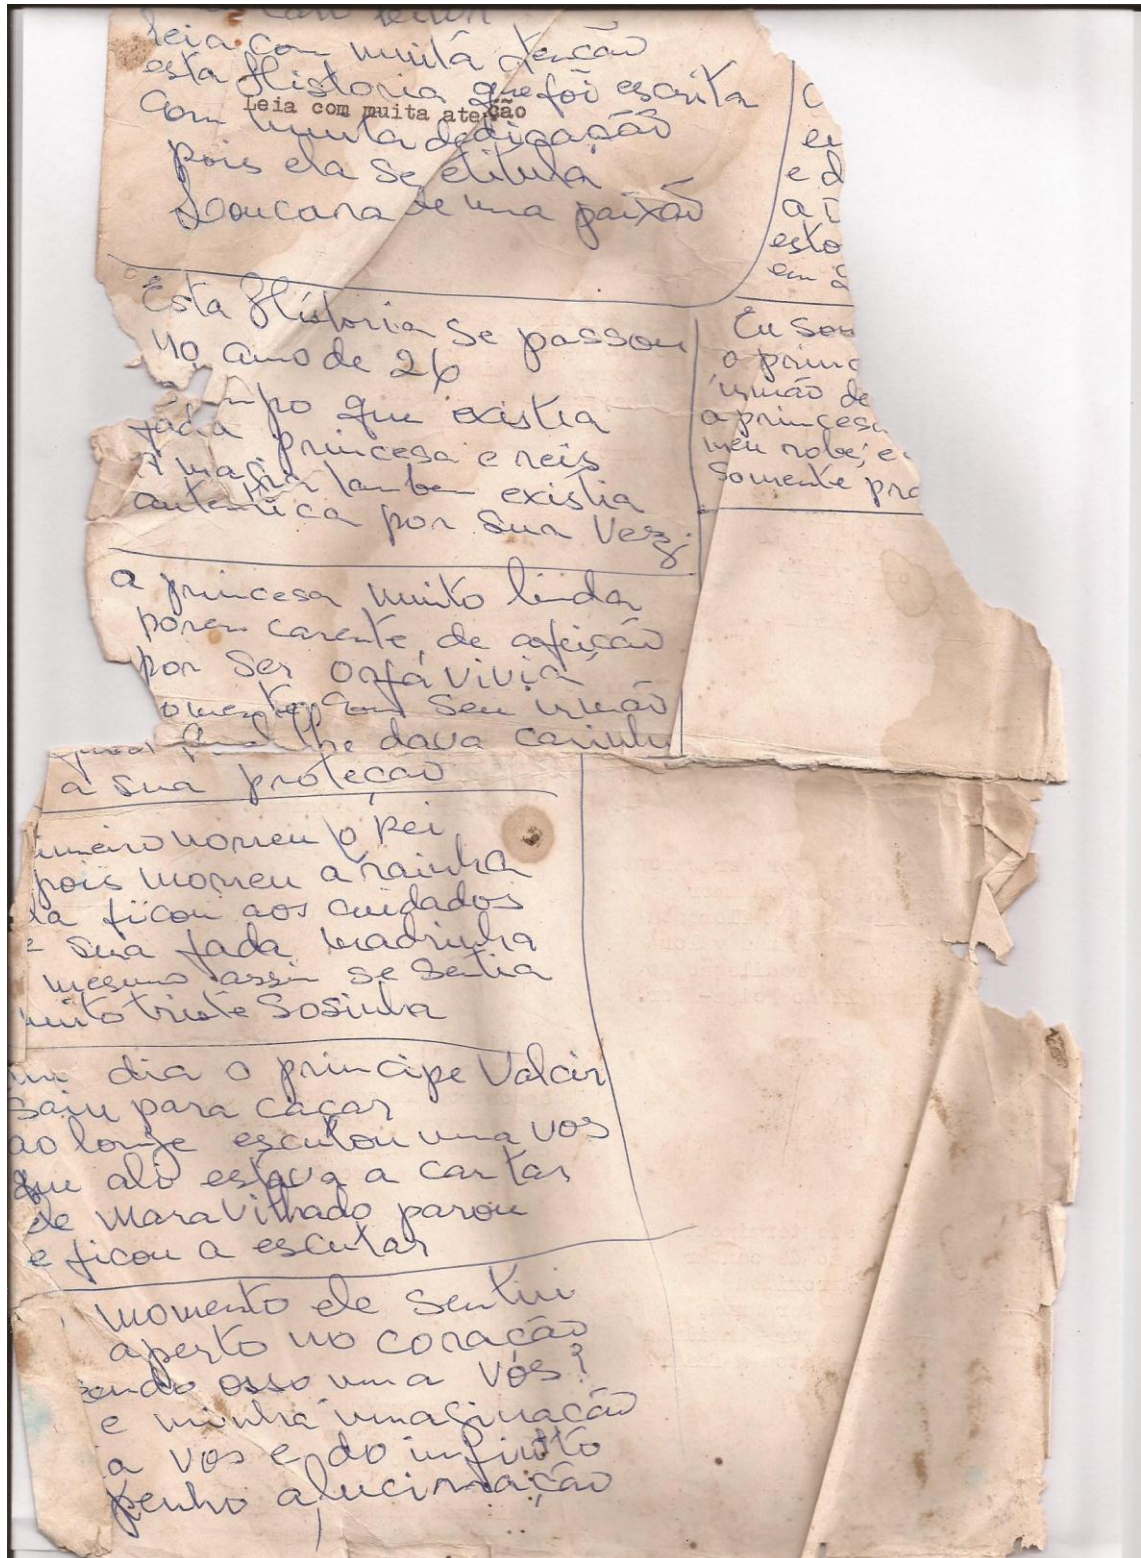 leia com muita atencão
esta Historia que foi escrita
Leia com muita atenção
com muita dedicação
pois ela se etitula
Loucura de uma paixão
Esta Historia se passou
no ano de 26
que existia
fada princesa e reis
A magia tambem existia
autentica por sua vez.
a princesa muito linda
porem carente de afeição
por ser orfá vivia
omente com seu irmão
qual lhe dava carinho
a sua proteção
imeiro morreu o Rei
pois morreu a rainha
la ficou aos cuidados
e sua fada madrinha
mesmo assin se sentia
uito triste sosinha
um dia o principe Valcir
saiu para caçar
ao longe escutou uma vos
que ali estava a cantar
ele maravilhado parou
e ficou a escutar
momento ele sentiu
aperto no coração
zendo osso uma vós?
e minha imaginação
a vos e do infinito
tenho alucinação
e d
esto
em
Eu sou
o princ
irmão de
a princesa
meu nobe, e
somente pra